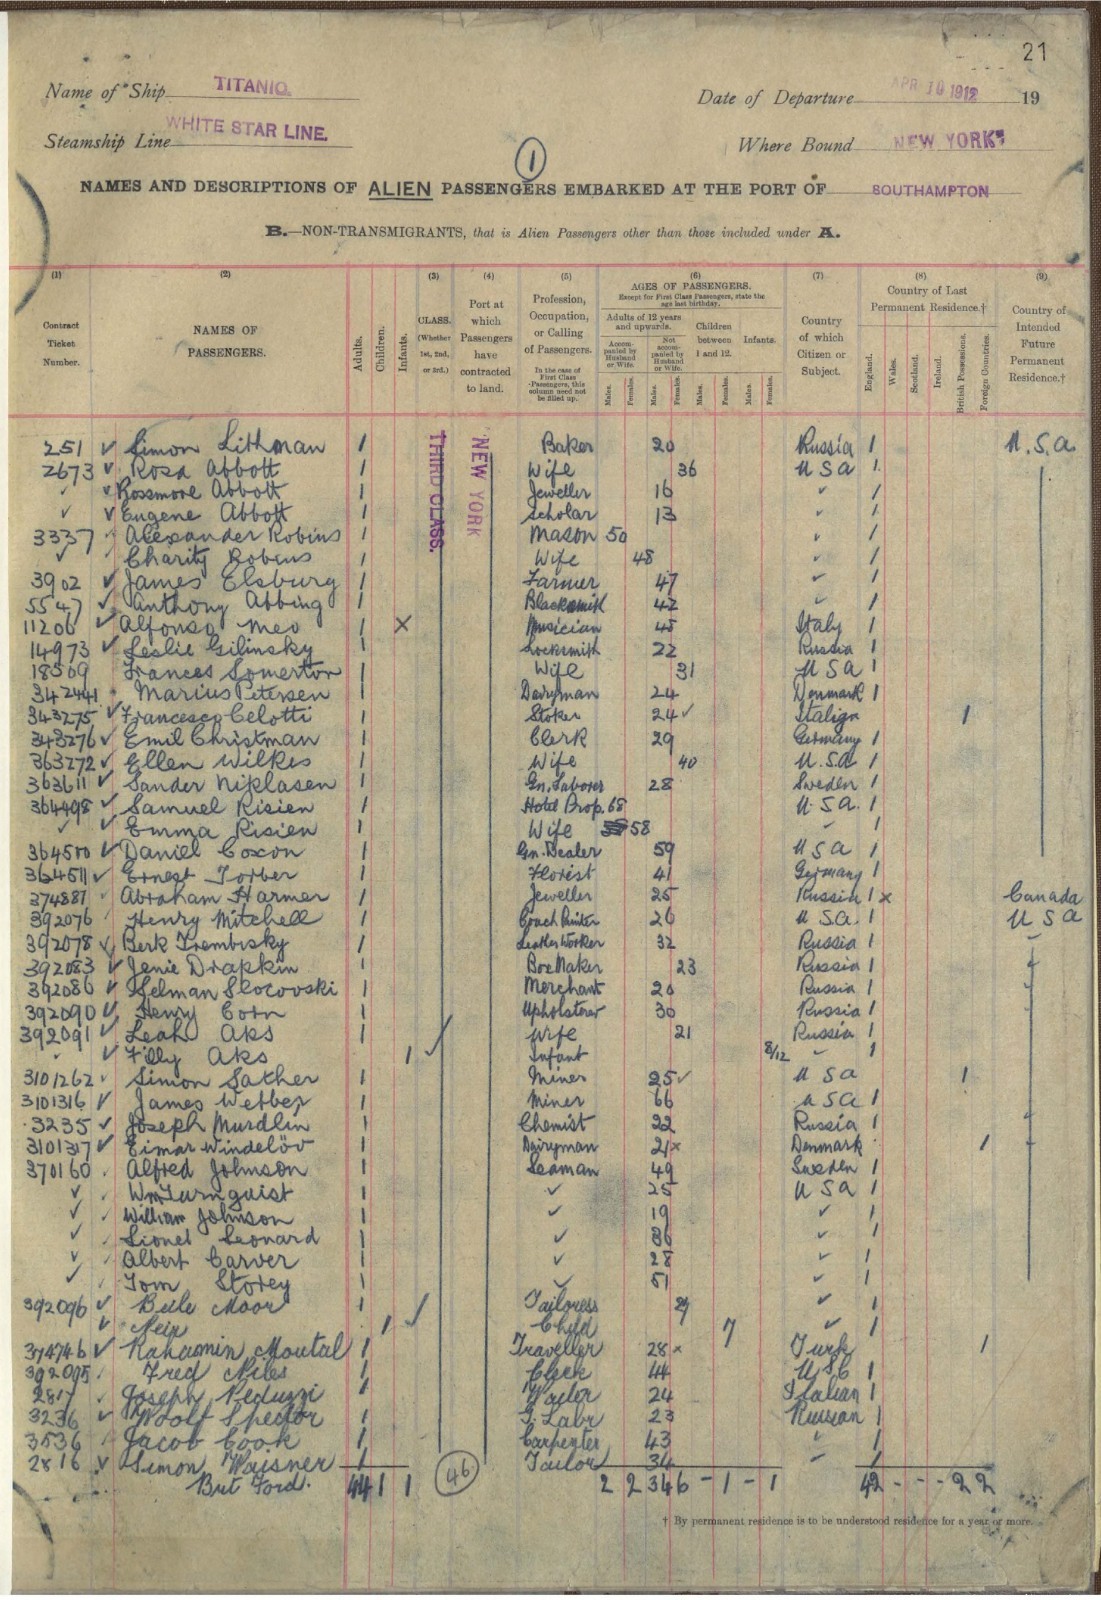 21
Name of Ship TITANIC. Date of Departure APR 10 1912 19
Steamship Line WHITE STAR LINE. Where Bound NEW YORK
1
NAMES AND DESCRIPTIONS OF ALIEN PASSENGERS EMBARKED AT THE PORT OF SOUTHAMPTON
B.—NON-TRANSMIGRANTS, that is Alien Passengers other than those included under A.
(1) (2) (3) (4) (5) (6) (7) (8) (9)
Contract Ticket Number.
NAMES OF PASSENGERS.
Adults. Children. Infants.
CLASS. (Whether 1st, 2nd, or 3rd.)
Port at which Passengers have contracted to land.
Profession, Occupation, or Calling of Passengers.
In the case of First Class Passengers, this column need not be filled up.
AGES OF PASSENGERS.
Except for First Class Passengers, state the age last birthday.
Adults of 12 years and upwards. Children between 1 and 12. Infants.
Accompanied by Husband or Wife. Not accompanied by Husband or Wife.
Males. Females. Males. Females. Males. Females. Males. Females.
Country of which Citizen or Subject.
Country of Last Permanent Residence.†
England. Wales. Scotland. Ireland. British Possessions. Foreign Countries.
Country of Intended Future Permanent Residence.†
THIRD CLASS.
NEW YORK
251 ✓ Simon Lithman 1 Baker 20 Russia 1 U.S.A.
2673 ✓ Rosa Abbott 1 Wife 36 U S A 1
✓ ✓ Rossmore Abbott 1 Jeweller 16 " 1
✓ ✓ Eugene Abbott 1 Scholar 13 " 1
3337 Alexander Robins 1 Mason 50 " 1
✓ Charity Robins 1 Wife 48 " 1
3902 ✓ James Elsbury 1 Farmer 47 " 1
5547 ✓ Anthony Abbing 1 Blacksmith 42 " 1
11206 ✓ Alfonso Meo 1 × Musician 45 Italy 1
14973 ✓ Leslie Gilinsky 1 Locksmith 22 Russia 1
18509 Frances Somerton 1 Wife 31 U S A 1
342441 Marius Petersen 1 Dairyman 24 Denmark 1
343275 ✓ Francesco Celotti 1 Stoker 24 ✓ Italian 1
343276 ✓ Emil Christman 1 Clerk 29 Germany 1
363272 ✓ Ellen Wilkes 1 Wife 40 U.S.A 1
363611 ✓ Sander Niklasen 1 Gn. Laborer 28 Sweden 1
364498 ✓ Samuel Risien 1 Hotel Prop. 68 U.S.A. 1
✓ ✓ Emma Risien 1 Wife 58 " 1
364500 ✓ Daniel Coxon 1 Gn. Dealer 59 U S A 1
364511 ✓ Ernest Torber 1 Florist 41 Germany 1
374887 Abraham Harmer 1 Jeweller 25 Russia 1 × Canada
392076 Henry Mitchell 1 Coach Painter 26 U.S.A. 1 U S A
392078 ✓ Berk Trembisky 1 Leather Worker 32 Russia 1
392083 ✓ Jenie Drapkin 1 Box Maker 23 Russia 1
392086 ✓ Selman Slocovski 1 Merchant 20 Russia 1
392090 ✓ Henry Corn 1 Upholsterer 30 Russia 1
392091 ✓ Leah Aks 1 Wife 21 Russia 1
✓ ✓ Filly Aks 1 ✓ Infant 8/12 " 1
3101262 ✓ Simon Sather 1 Miner 25 ✓ U S A 1
3101316 ✓ James Webber 1 Miner 66 U S A 1
3235 ✓ Joseph Murdlin 1 Chemist 22 Russia 1
3101317 ✓ Eimar Windelöv 1 Dairyman 21 × Denmark 1
370160 Alfred Johnson 1 Seaman 49 Sweden 1
✓ Wm Turnquist 1 ✓ 25 U S A 1
✓ William Johnson 1 ✓ 19 ✓ 1
✓ Lionel Leonard 1 ✓ 36 ✓ 1
✓ Albert Carver 1 ✓ 28 ✓ 1
✓ Tom Storey 1 ✓ 51 ✓ 1
392096 ✓ Beile Moor 1 Tailoress 29 ✓ 1
✓ Meir 1 ✓ Child 7 ✓ 1
374746 ✓ Rahamin Moutal 1 Traveller 28 × Turk 1
392095 Fred Niles 1 Clerk 44 1
2817 Joseph Peduzzi 1 Waiter 24 Italian 1
3236 ✓ Woolf Spector 1 G. Labr 23 Russian 1
3536 Jacob Cook 1 Carpenter 43 " 1
2816 ✓ Simon Waisner 1 Tailor 34 " 1
Brt Ford. 44 1 1 46 2 2 34 6 - 1 - 1 42 - - - 2 2
† By permanent residence is to be understood residence for a year or more.